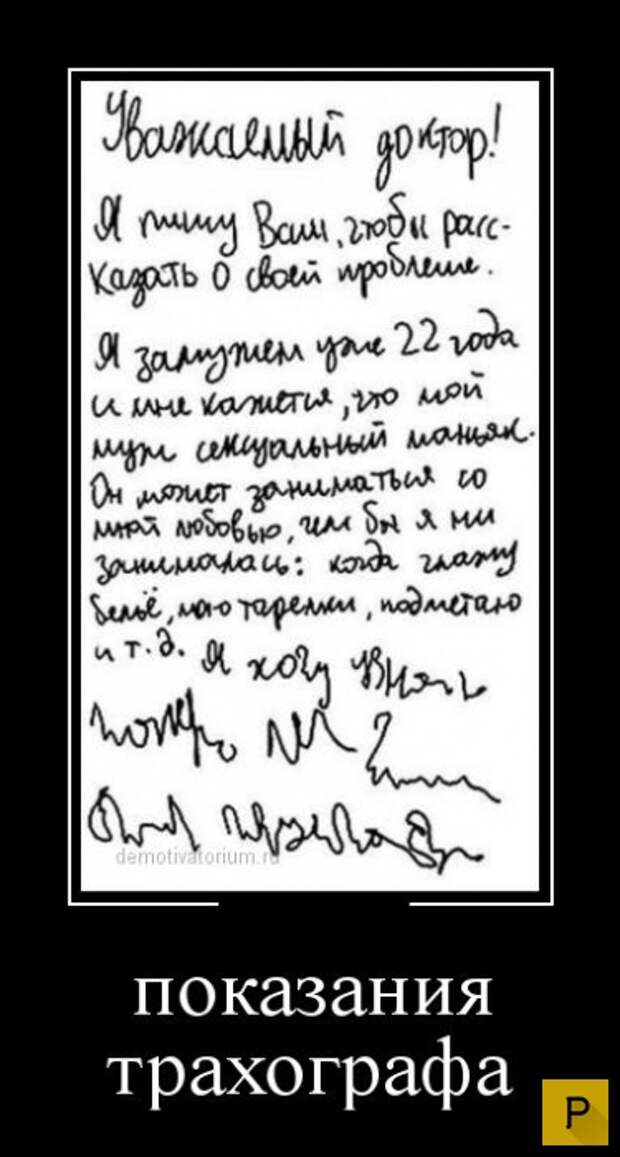 Уважаемый доктор!
Я пишу Вам, чтобы расс-
казать о своей проблеме.
Я замужем уже 22 года
и мне кажется, что мой
муж сексуальный маньяк.
Он может заниматься со
мной любовью, чем бы я ни
занималась: когда глажу
бельё, мою тарелки, подметаю
и т.д. Я хочу узнать
demotivatorium.ru
показания
трахографа
P